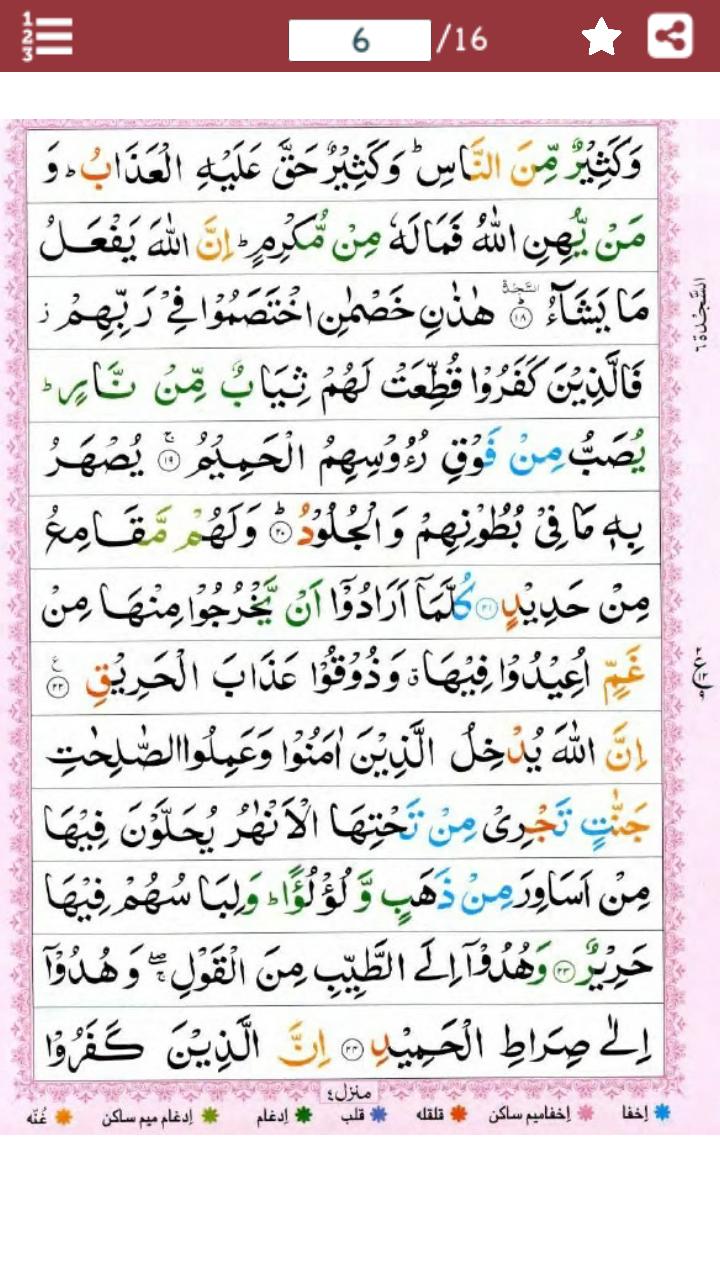 1
2
3
6 /16
وَكَثِيْرٌ مِّنَ النَّاسِ ؕ وَكَثِيْرٌ حَقَّ عَلَيْهِ الْعَذَابُ ؕ وَ
مَنْ يُّهِنِ اللّٰهُ فَمَا لَهٗ مِنْ مُّكْرِمٍ ؕ اِنَّ اللّٰهَ يَفْعَلُ
مَا يَشَآءُ ۩ ؕ ﴿۱۸﴾ هٰذٰنِ خَصْمٰنِ اخْتَصَمُوْا فِيْ رَبِّهِمْ ز
فَالَّذِيْنَ كَفَرُوْا قُطِّعَتْ لَهُمْ ثِيَابٌ مِّنْ نَّارٍ ؕ
يُصَبُّ مِنْ فَوْقِ رُءُوْسِهِمُ الْحَمِيْمُ ۚ ﴿۱۹﴾ يُصْهَرُ
بِهٖ مَا فِيْ بُطُوْنِهِمْ وَالْجُلُوْدُ ؕ ﴿۲۰﴾ وَلَهُمْ مَّقَامِعُ
مِنْ حَدِيْدٍ ﴿۲۱﴾ كُلَّمَآ اَرَادُوْٓا اَنْ يَّخْرُجُوْا مِنْهَا مِنْ
غَمٍّ اُعِيْدُوْا فِيْهَا ۗ وَذُوْقُوْا عَذَابَ الْحَرِيْقِ ﴿۲۲﴾ ع
اِنَّ اللّٰهَ يُدْخِلُ الَّذِيْنَ اٰمَنُوْا وَعَمِلُوا الصّٰلِحٰتِ
جَنّٰتٍ تَجْرِيْ مِنْ تَحْتِهَا الْاَنْهٰرُ يُحَلَّوْنَ فِيْهَا
مِنْ اَسَاوِرَ مِنْ ذَهَبٍ وَّ لُؤْلُؤًا ؕ وَلِبَاسُهُمْ فِيْهَا
حَرِيْرٌ ﴿۲۳﴾ وَهُدُوْٓا اِلَى الطَّيِّبِ مِنَ الْقَوْلِ ۖۚ وَهُدُوْٓا
اِلٰى صِرَاطِ الْحَمِيْدِ ﴿۲۴﴾ اِنَّ الَّذِيْنَ كَفَرُوْا
السَّجْدَة ٦
منزل ٤
إخفا إخفامیم ساکن قلقله قلب إدغام إدغام میم ساکن غُنّه